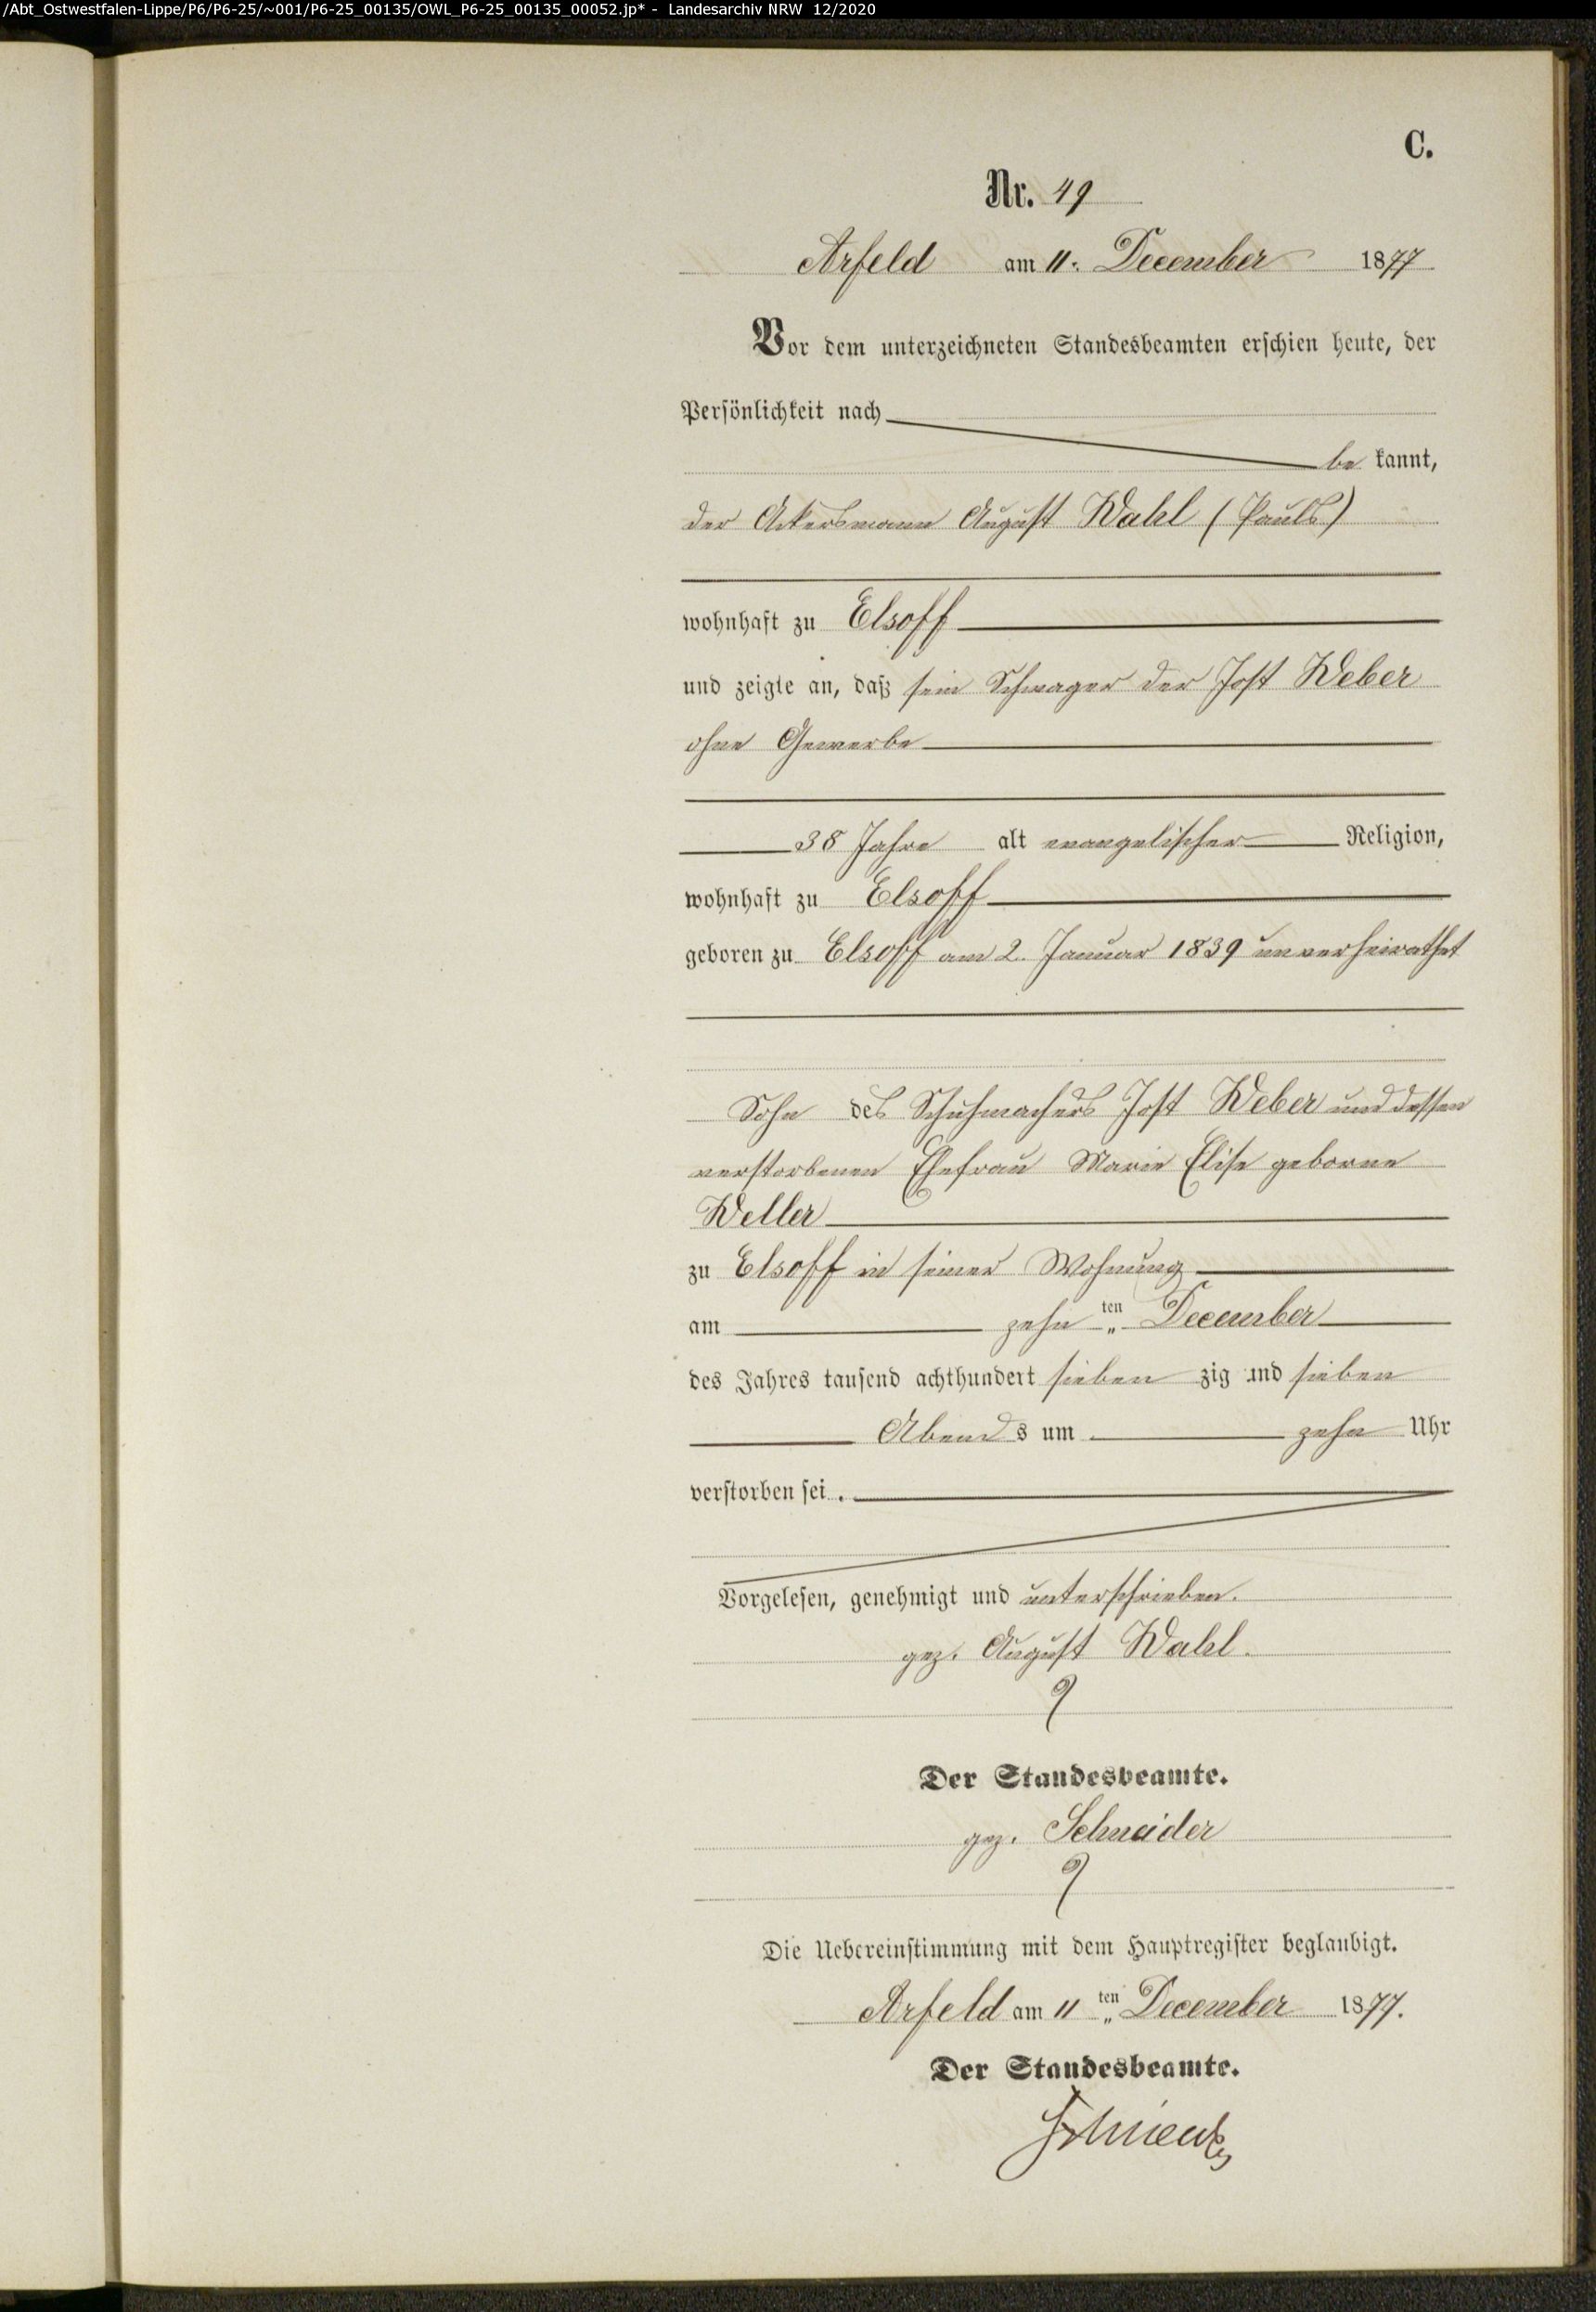 /Abt_Ostwestfalen-Lippe/P6/P6-25/~001/P6-25_00135/OWL_P6-25_00135_00052.jp* - Landesarchiv NRW 12/2020
C.
Nr. 49
Arfeld am 11. December 1877
Vor dem unterzeichneten Standesbeamten erschien heute, der
Persönlichkeit nach
be kannt,
der Ackersmann August Wahl (Pauls)
wohnhaft zu Elsoff
und zeigte an, daß sein Schwager der Jost Weber
ohne Gewerbe
38 Jahre alt evangelischer Religion,
wohnhaft zu Elsoff
geboren zu Elsoff am 2. Januar 1839 unverheirathet
Sohn des Schuhmachers Jost Weber und dessen
verstorbenen Ehefrau Marie Elise geborne
Weller
zu Elsoff in seiner Wohnung
am zehn ten December
des Jahres tausend achthundert sieben zig und sieben
Abend s um zehn Uhr
verstorben sei.
Vorgelesen, genehmigt und unterschrieben.
gez. August Wahl.
Der Standesbeamte.
gez. Schneider
Die Uebereinstimmung mit dem Hauptregister beglaubigt.
Arfeld am 11 ten December 1877.
Der Standesbeamte.
Schneider